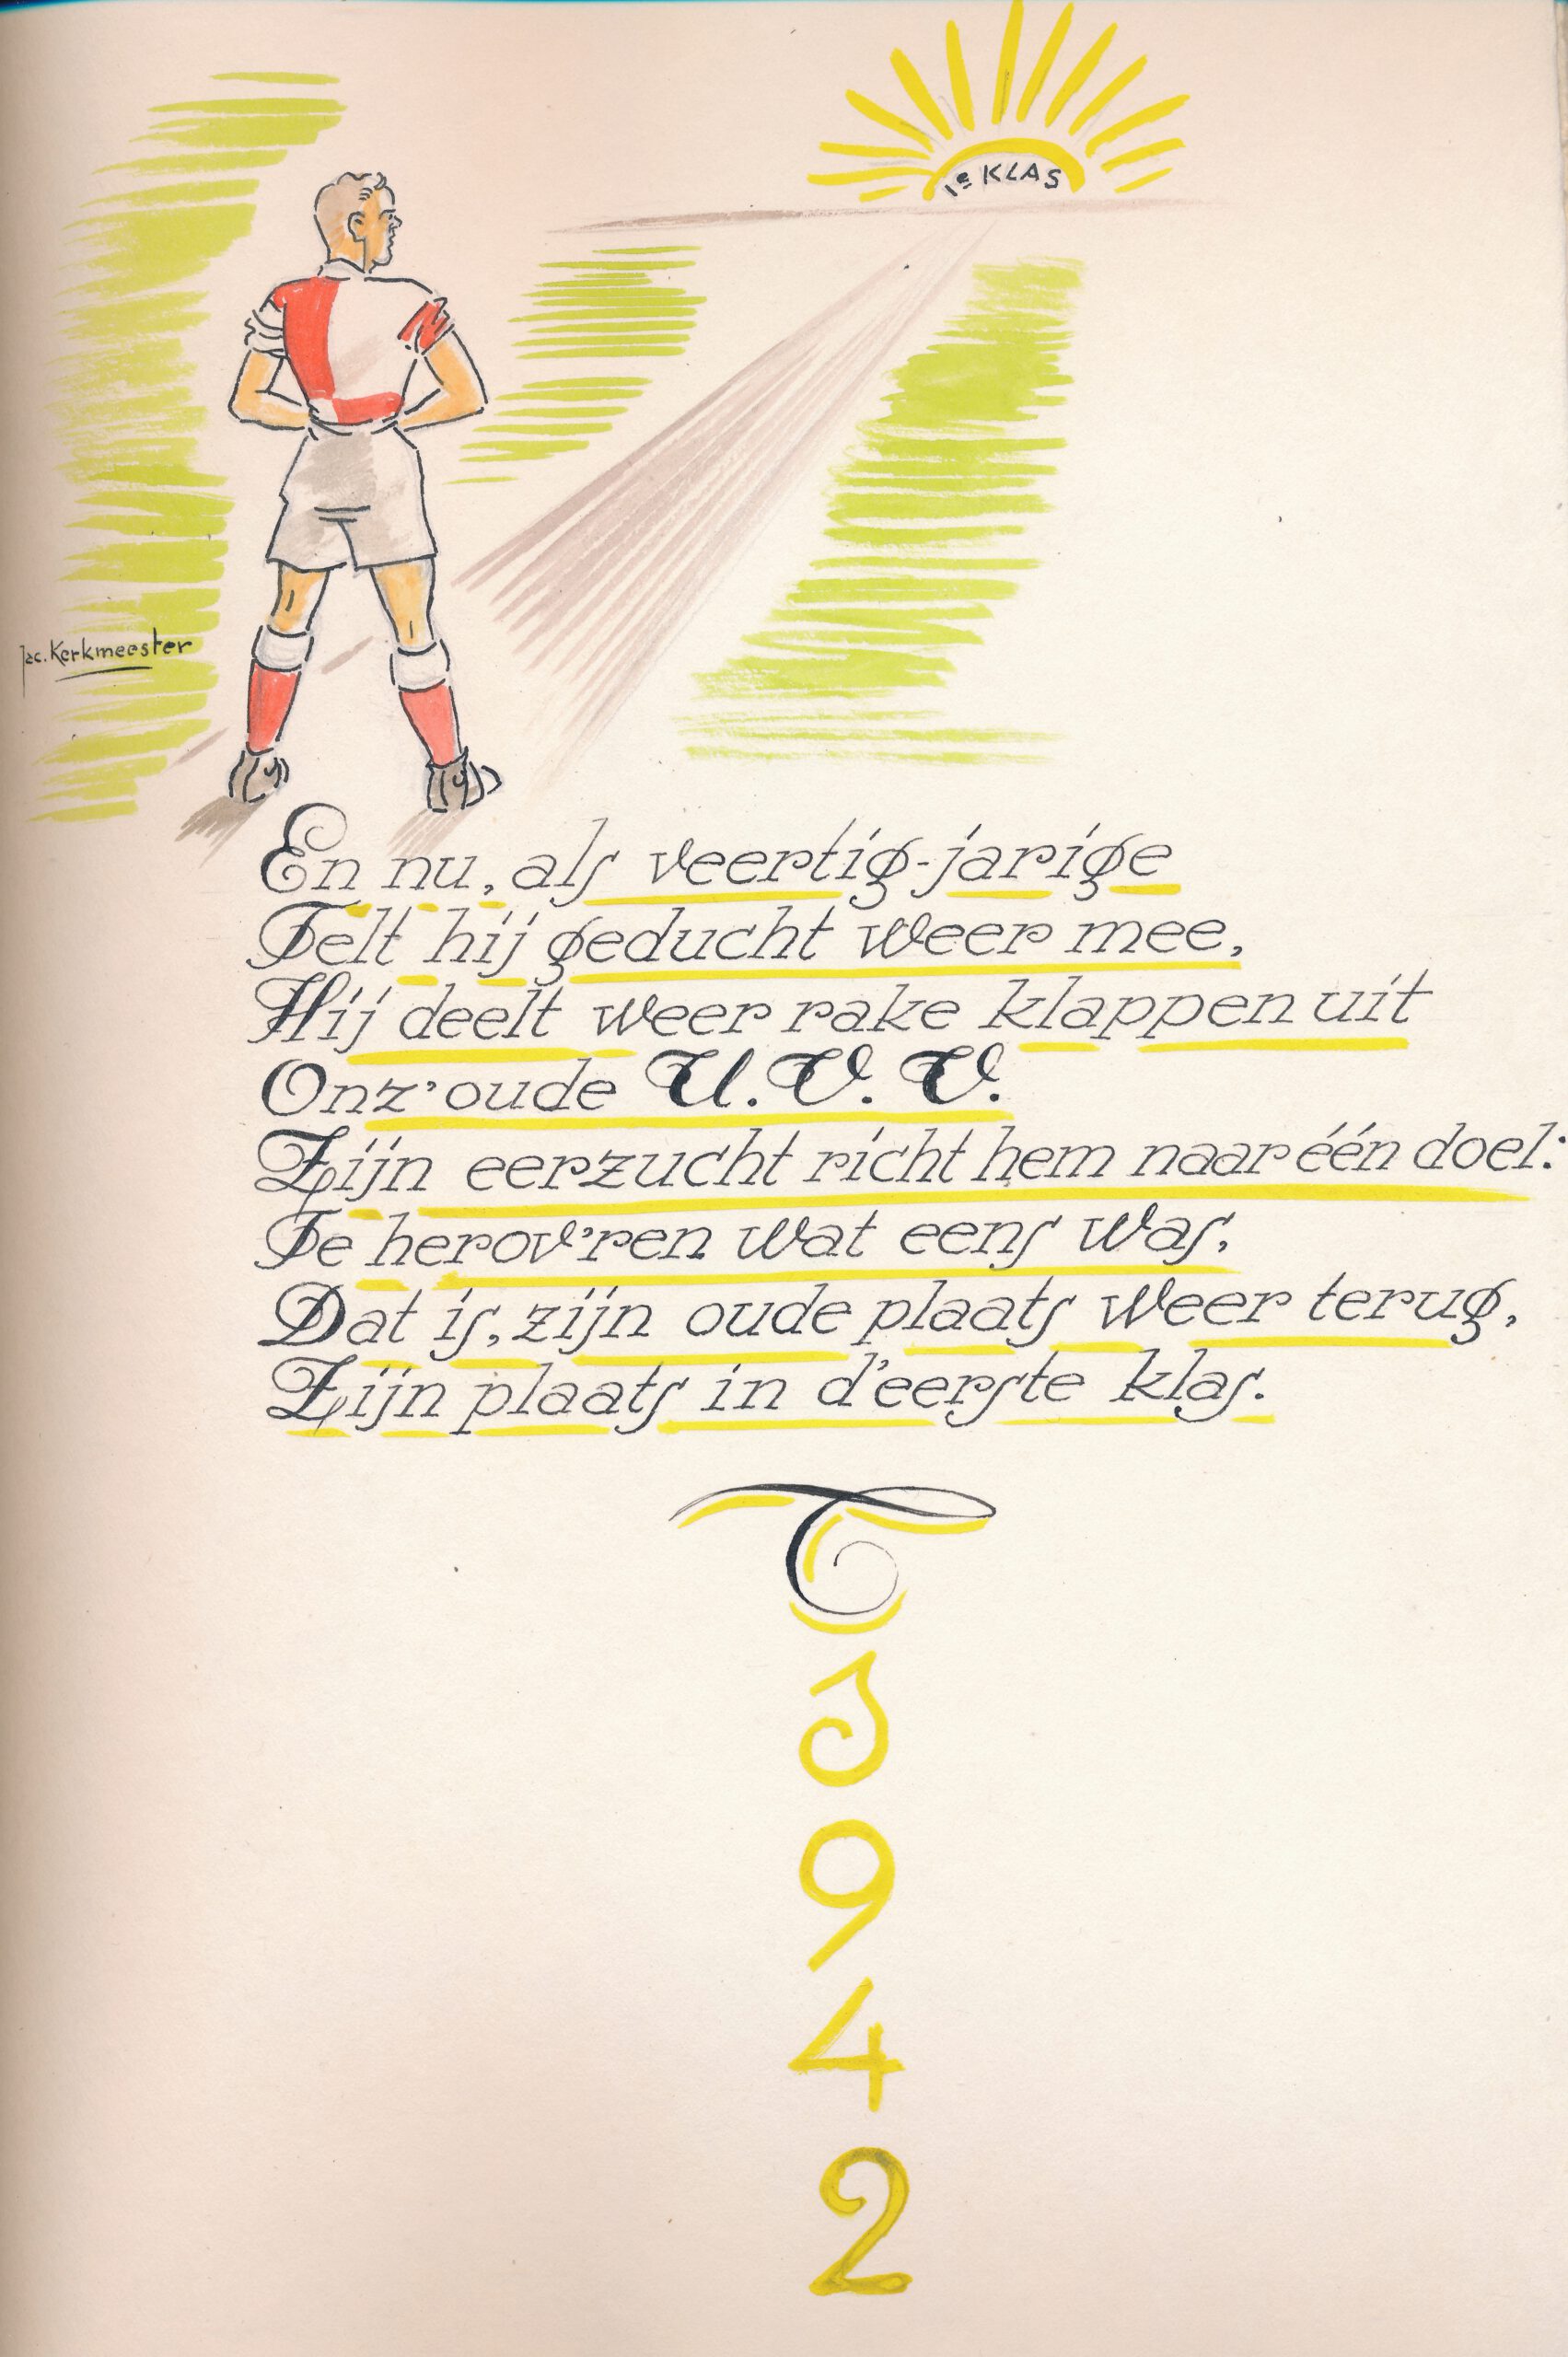 1e KLAS
Jac. Kerkmeester
En nu, als veertig-jarige
Telt hij geducht weer mee,
Hij deelt weer rake klappen uit
Onz' oude U.V.V.
Zijn eerzucht richt hem naar één doel:
Te herov'ren wat eens was,
Dat is, zijn oude plaats weer terug,
Zijn plaats in d'eerste klas.
1
9
4
2